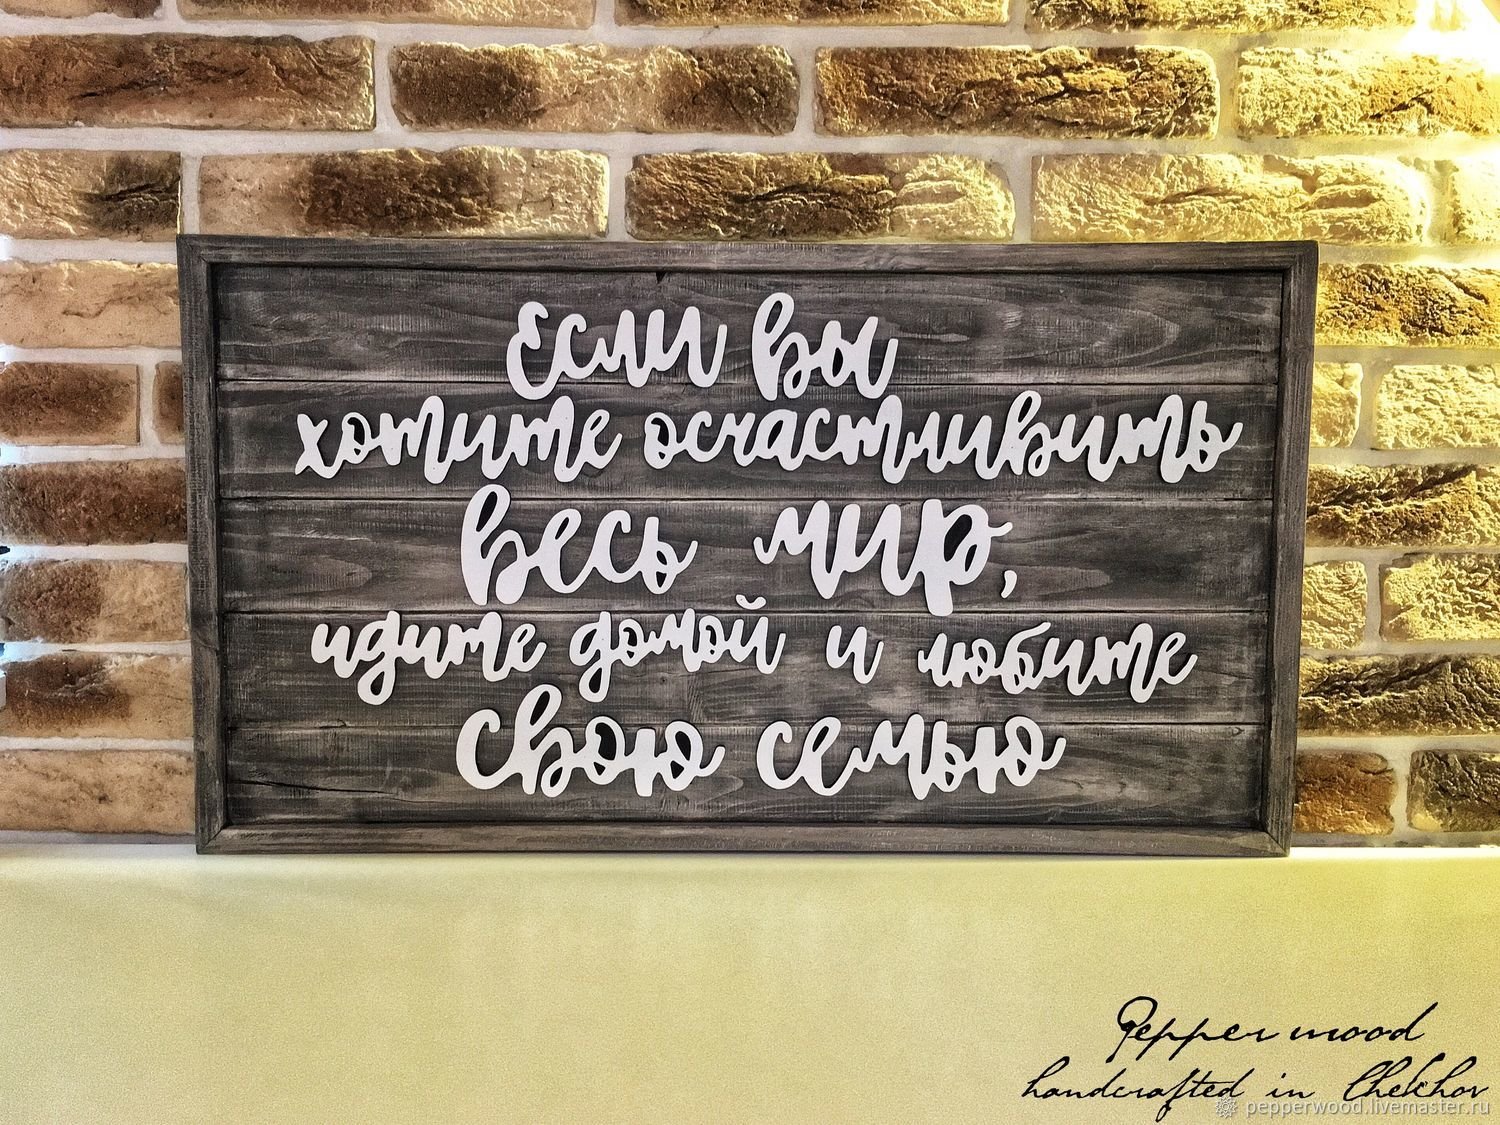 Если вы
хотите осчастливить
весь мир,
идите домой и любите
свою семью
Pepper wood
handcrafted in Chekhov
pepperwood.livemaster.ru